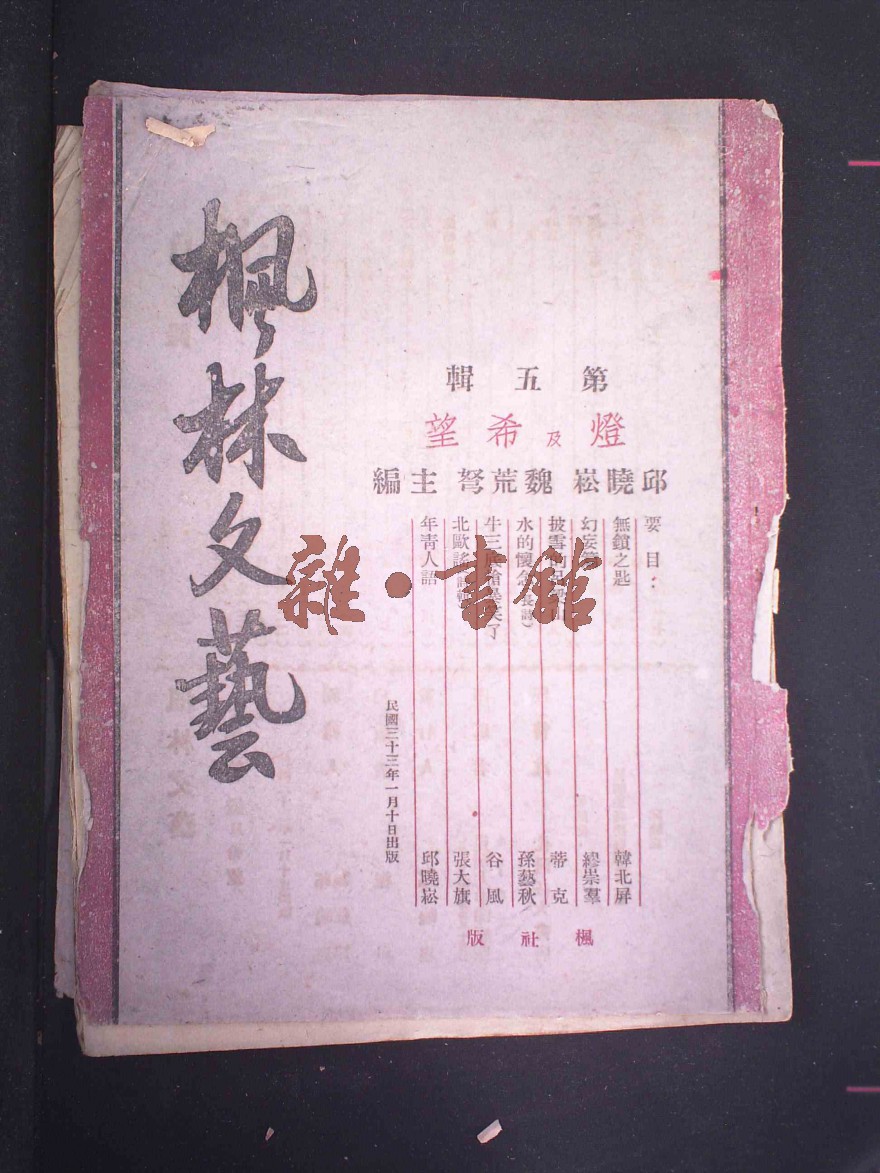 楓林文藝
第五輯
燈及希望
邱曉崧 魏荒弩 主編
要目：
無鎖之匙 韓北屏
幻妄 繆崇羣
披雪 蒂克
水的懷念(長詩) 孫藝秋
牛三 笑了 谷風
北歐謠 張大旗
年青人語 邱曉崧
民國三十三年一月十日出版
楓社版
雜·書館